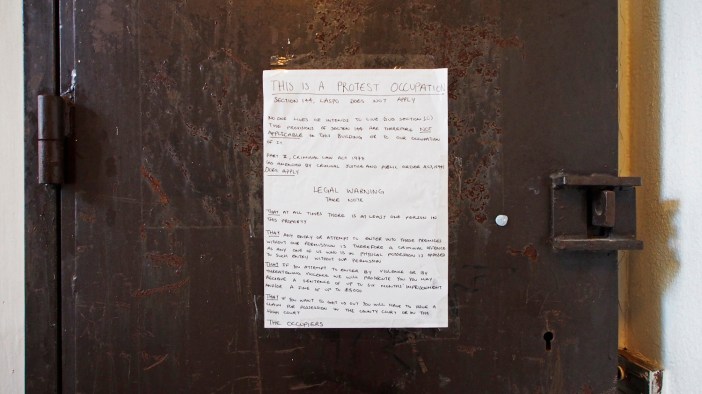 THIS IS A PROTEST OCCUPATION
SECTION 144, LASPO DOES NOT APPLY
NO ONE LIVES OR INTENDS TO LIVE
THE PROVISIONS OF SECTION 144 ARE THEREFORE NOT
APPLICABLE IN THIS BUILDING OR TO OUR OCCUPATION
OF IT.
PART II, CRIMINAL LAW ACT 1977
AS AMENDED BY CRIMINAL JUSTICE AND PUBLIC ORDER ACT, 1994
DOES APPLY
LEGAL WARNING
TAKE NOTE
THAT AT ALL TIMES THERE IS AT LEAST ONE PERSON IN
THIS PROPERTY
THAT ANY ENTRY OR ATTEMPT TO ENTER INTO THESE PREMISES
WITHOUT OUR PERMISSION IS THEREFORE A CRIMINAL OFFENCE
AS ANY ONE OF US WHO IS IN PHYSICAL POSSESSION IS OPPOSED
TO SUCH ENTRY WITHOUT OUR PERMISSION
THAT IF YOU ATTEMPT TO ENTER BY VIOLENCE OR BY
THREATENING VIOLENCE WE WILL PROSECUTE YOU. YOU MAY
RECEIVE A SENTENCE OF UP TO SIX MONTHS' IMPRISONMENT
AND/OR A FINE OF UP TO £5000
THAT IF YOU WANT TO GET US OUT YOU WILL HAVE TO ISSUE A
CLAIM FOR POSSESSION IN THE COUNTY COURT OR IN THE
HIGH COURT
THE OCCUPIERS